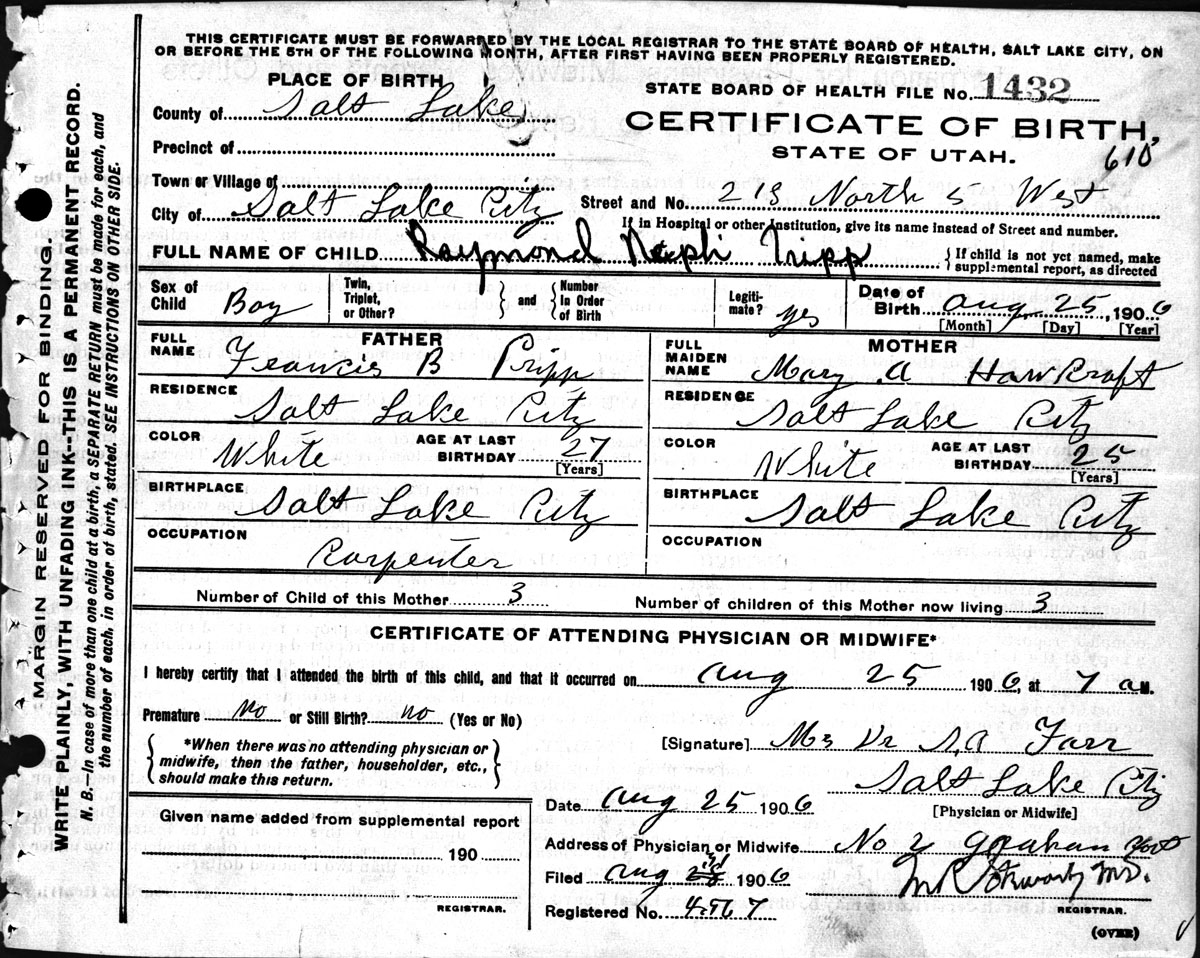 THIS CERTIFICATE MUST BE FORWARDED BY THE LOCAL REGISTRAR TO THE STATE BOARD OF HEALTH, SALT LAKE CITY, ON
OR BEFORE THE 5TH OF THE FOLLOWING MONTH, AFTER FIRST HAVING BEEN PROPERLY REGISTERED.
PLACE OF BIRTH
STATE BOARD OF HEALTH FILE No. 1432
County of Salt Lake
CERTIFICATE OF BIRTH,
Precinct of
STATE OF UTAH. 610
Town or Village of
City of Salt Lake City
Street and No. 213 North 5 West
If in Hospital or other Institution, give its name instead of Street and number.
FULL NAME OF CHILD Raymond Nephi Tripp
{ If child is not yet named, make
supplemental report, as directed
Sex of Child Boy
Twin, Triplet, or Other? } and { Number In Order of Birth
Legiti-mate? yes
Date of Birth Aug 25, 1906
[Month] [Day] [Year]
FATHER
FULL NAME Francis B Tripp
RESIDENCE Salt Lake City
COLOR White AGE AT LAST BIRTHDAY 27
[Years]
BIRTHPLACE Salt Lake City
OCCUPATION Carpenter
MOTHER
FULL MAIDEN NAME Mary A Hawkraft
RESIDENCE Salt Lake City
COLOR White AGE AT LAST BIRTHDAY 25
[Years]
BIRTHPLACE Salt Lake City
OCCUPATION
Number of Child of this Mother 3 Number of children of this Mother now living 3
CERTIFICATE OF ATTENDING PHYSICIAN OR MIDWIFE*
I hereby certify that I attended the birth of this child, and that it occurred on Aug 25 1906, at 7 a M.
Premature No or Still Birth? no (Yes or No)
{ *When there was no attending physician or
midwife, then the father, householder, etc.,
should make this return. }
[Signature] Mrs Dr S.A Farr
Salt Lake City
[Physician or Midwife]
Date Aug 25 1906
Given name added from supplemental report
190
REGISTRAR.
Address of Physician or Midwife No 2 Graham
Filed Aug 1906
M.D.
REGISTRAR.
Registered No.
(OVER)
MARGIN RESERVED FOR BINDING.
WRITE PLAINLY, WITH UNFADING INK--THIS IS A PERMANENT RECORD.
N. B.—In case of more than one child at a birth, a SEPARATE RETURN must be made for each, and
the number of each, in order of birth, stated. SEE INSTRUCTIONS ON OTHER SIDE.